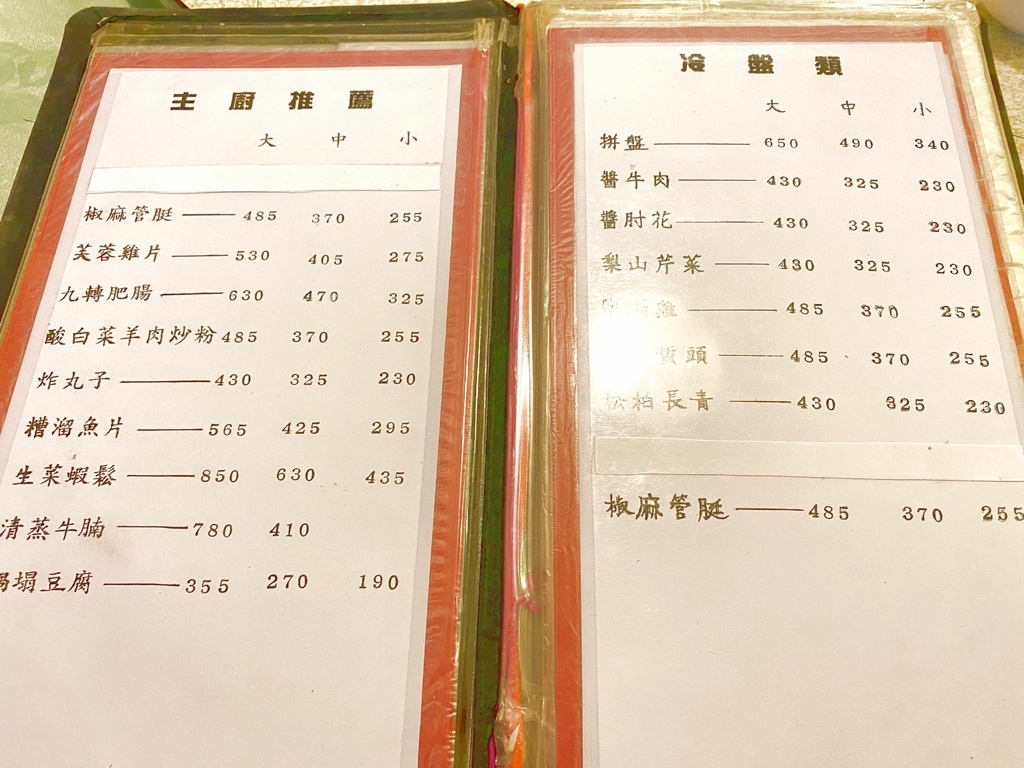 主廚推薦
大 中 小
椒麻管挺 485 370 255
芙蓉雞片 530 405 275
九轉肥腸 630 470 325
酸白菜羊肉炒粉 485 370 255
炸丸子 430 325 230
糟溜魚片 565 425 295
生菜蝦鬆 850 630 435
清蒸牛腩 780 410
鍋塌豆腐 355 270 190
冷盤類
大 中 小
拼盤 650 490 340
醬牛肉 430 325 230
醬肘花 430 325 230
梨山芹菜 430 325 230
雞 485 370 255
頭 485 370 255
松柏長青 430 325 230
椒麻管挺 485 370 255